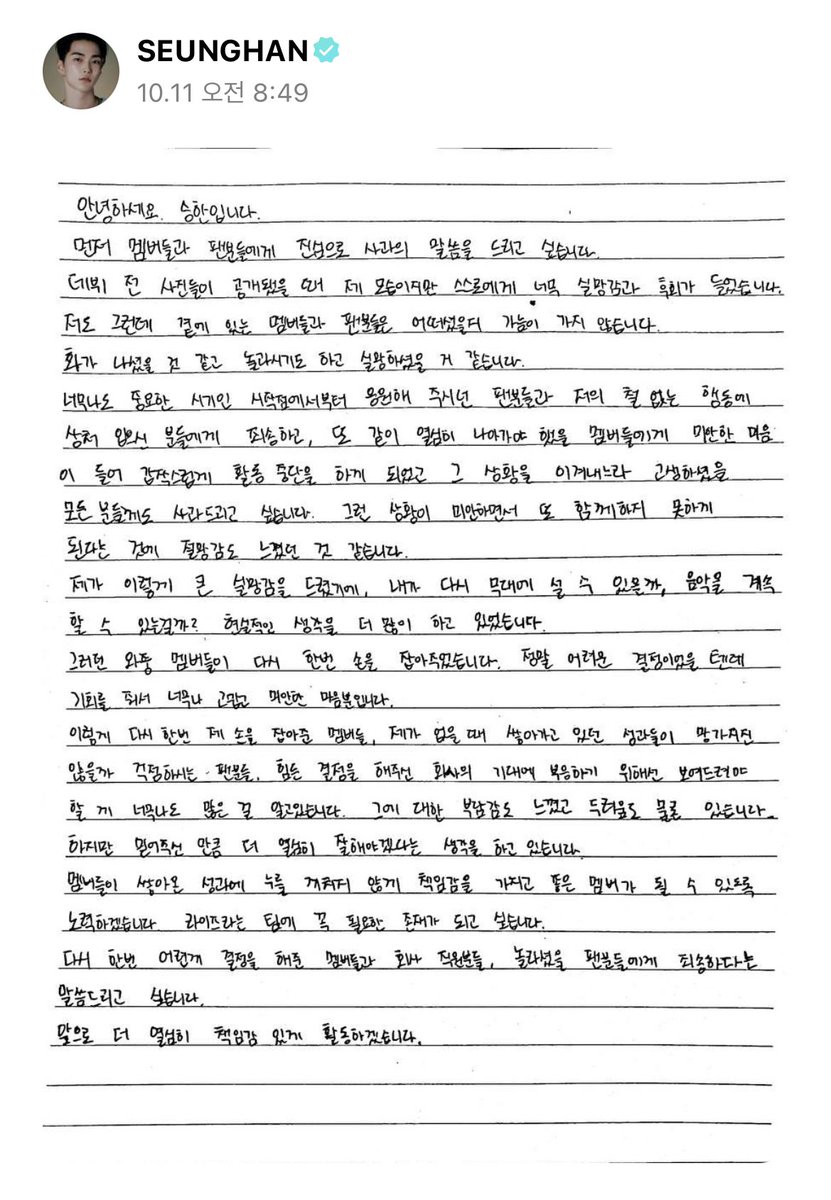 SEUNGHAN
10.11 오전 8:49
안녕하세요. 승한입니다.
먼저 멤버들과 팬분들에게 진심으로 사과의 말씀을 드리고 싶습니다.
데뷔 전 사진들이 공개됐을 때 제 모습이지만 스스로에게 너무 실망감과 후회가 들었습니다.
저도 그런데 곁에 있는 멤버들과 팬분들은 어떠셨을지 가늠이 가지 않습니다.
화가 나셨을 것 같고 놀라시기도 하고 실망하셨을 거 같습니다.
너무나도 중요한 시기인 시작점에서부터 응원해 주시던 팬분들과 저의 철 없는 행동에
상처 입으신 분들에게 죄송하고, 또 같이 열심히 나아가야 했을 멤버들에게 미안한 마음
이 들어 갑작스럽게 활동 중단을 하게 되었고 그 상황을 이겨내느라 고생하셨을
모든 분들께도 사과드리고 싶습니다. 그런 상황이 미안하면서 또 함께하지 못하게
된다는 것에 절망감도 느꼈던 것 같습니다.
제가 이렇게 큰 실망감을 드렸기에, 내가 다시 무대에 설 수 있을까, 음악을 계속
할 수 있는걸까? 현실적인 생각을 더 많이 하고 있었습니다.
그러던 와중 멤버들이 다시 한번 손을 잡아주었습니다. 정말 어려운 결정이었을 텐데
기회를 줘서 너무나 고맙고 미안한 마음뿐입니다.
이렇게 다시 한번 제 손을 잡아준 멤버들, 제가 없을 때 쌓아가고 있던 성과들이 망가지진
않을까 걱정하시는 팬분들, 힘든 결정을 해주신 회사의 기대에 부응하기 위해선 보여드려야
할 게 너무나도 많은 걸 알고있습니다. 그에 대한 부담감도 느꼈고 두려움도 물론 있습니다.
하지만 믿어주신 만큼 더 열심히 잘해야겠다는 생각을 하고 있습니다.
멤버들이 쌓아온 성과에 누를 끼치지 않게 책임감을 가지고 좋은 멤버가 될 수 있도록
노력하겠습니다. 라이즈라는 팀에 꼭 필요한 존재가 되고 싶습니다.
다시 한번 어렵게 결정을 해준 멤버들과 회사 직원분들, 놀라셨을 팬분들에게 죄송하다는
말씀드리고 싶습니다.
앞으로 더 열심히 책임감 있게 활동하겠습니다.